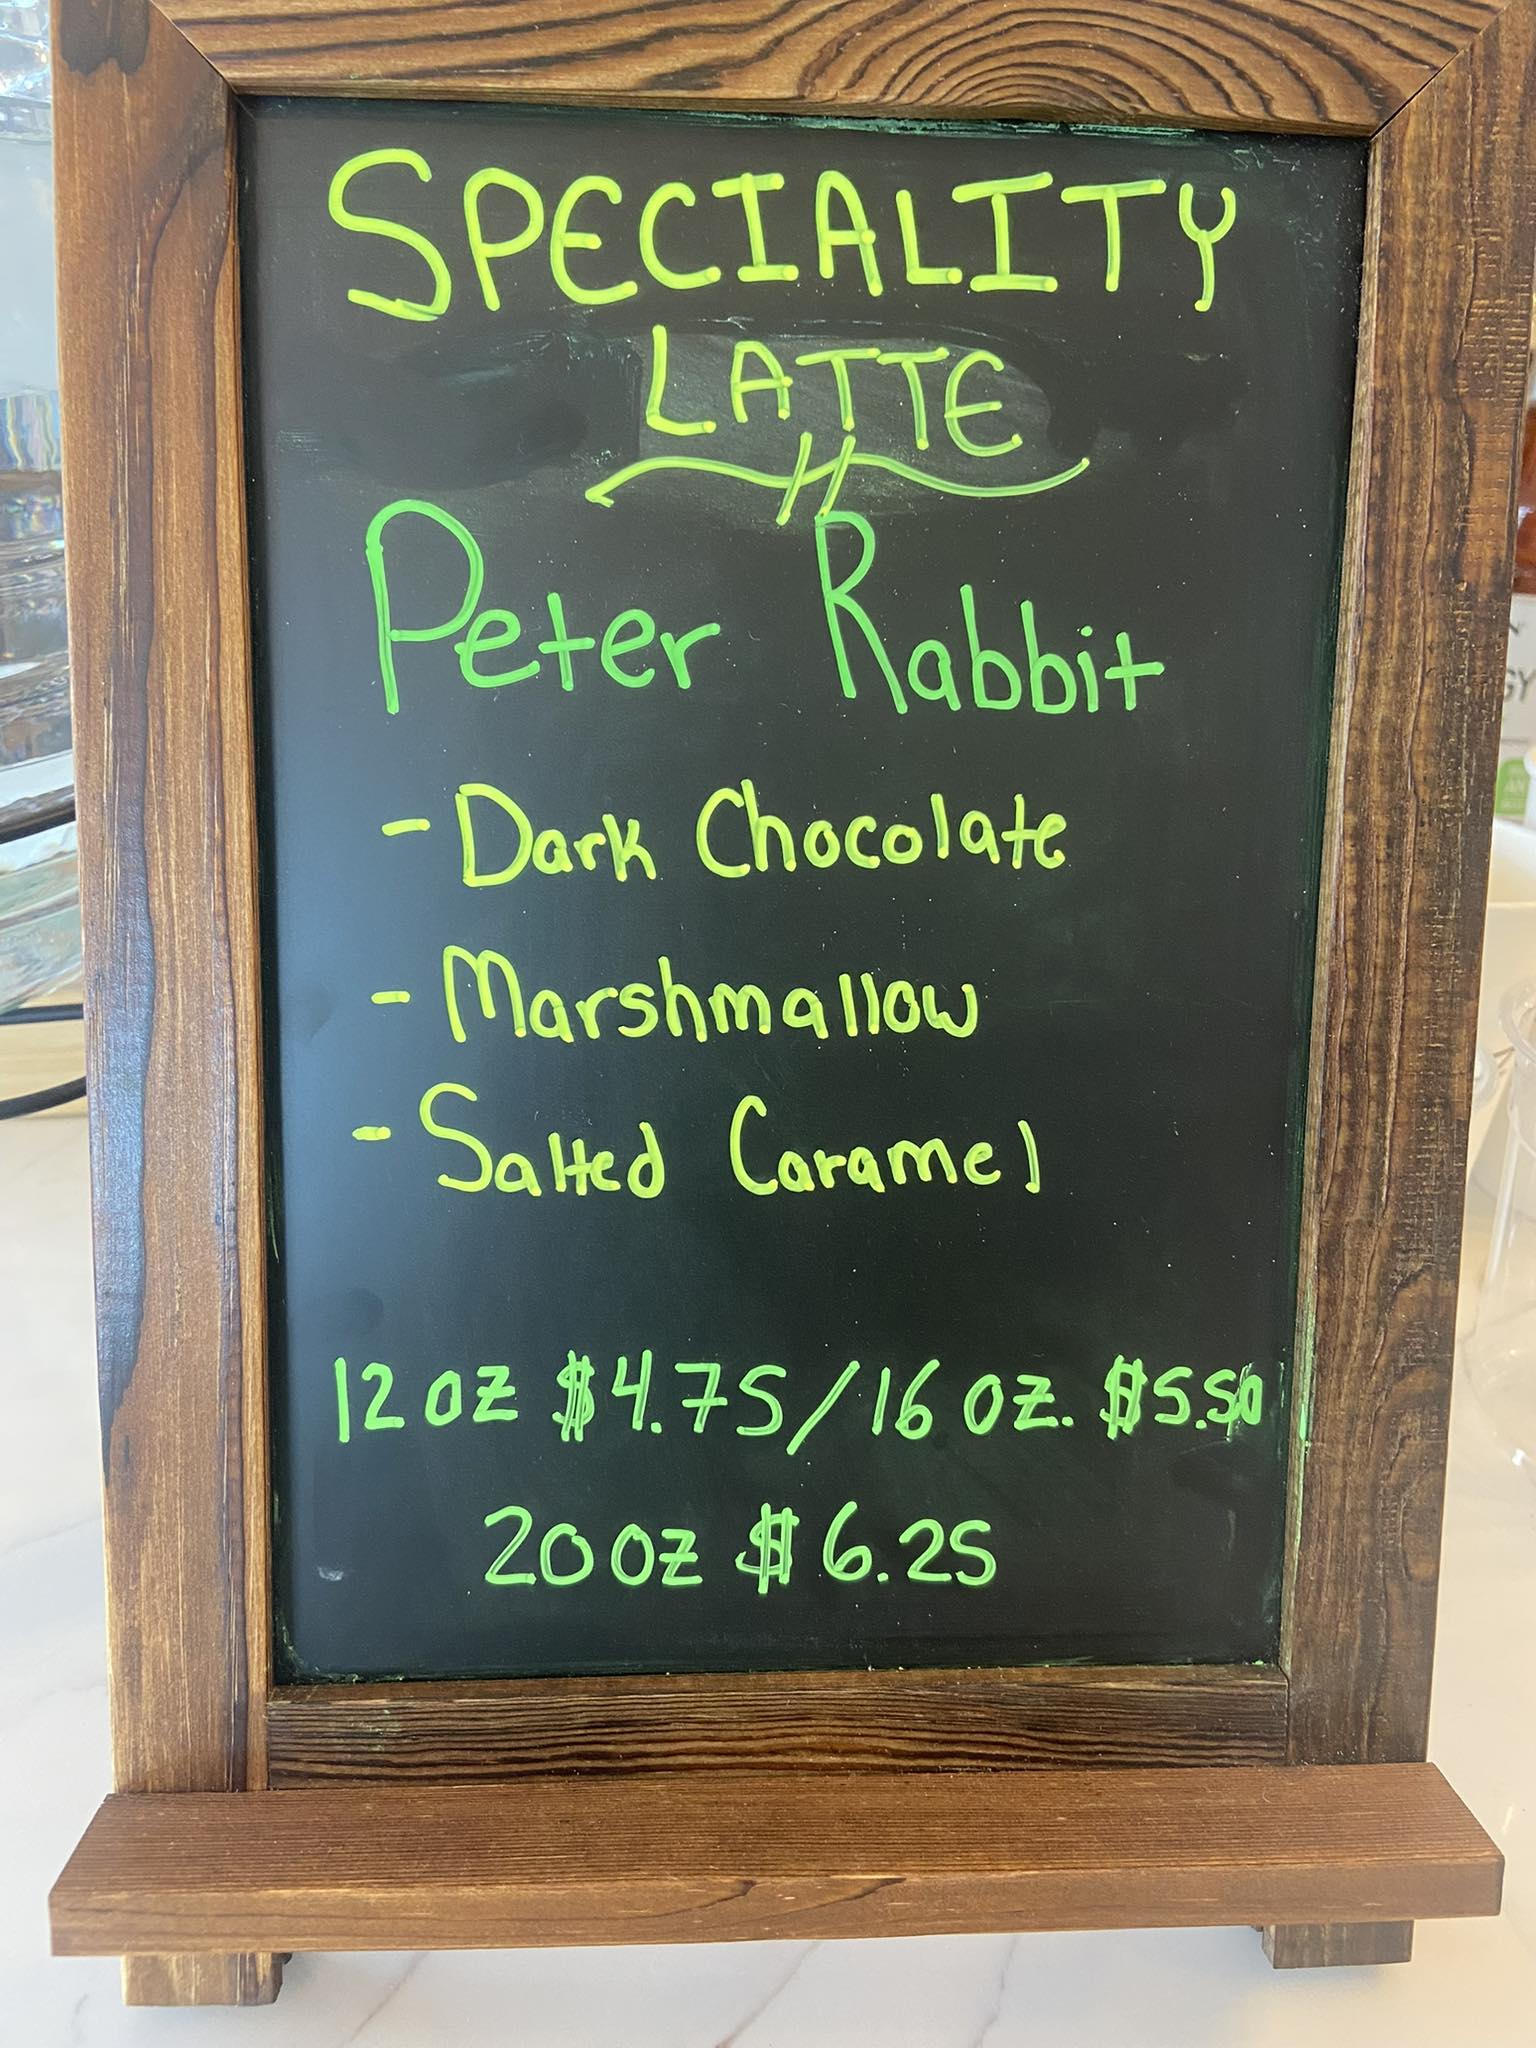 SPECIALITY
LATTE
Peter Rabbit
- Dark Chocolate
- Marshmallow
- Salted Caramel
12 oz $4.75/16 oz. $5.50
20 oz $6.25